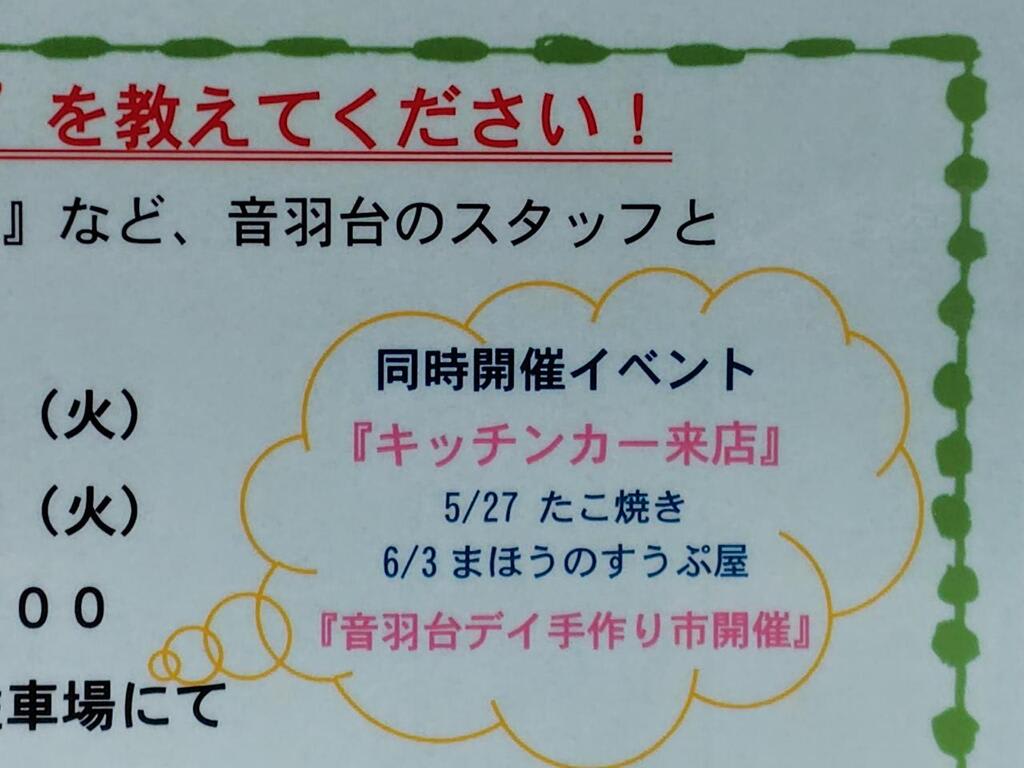 を教えてください！
』など、音羽台のスタッフと
（火）
（火）
００
車場にて
同時開催イベント
『キッチンカー来店』
5/27 たこ焼き
6/3 まほうのすうぷ屋
『音羽台デイ手作り市開催』